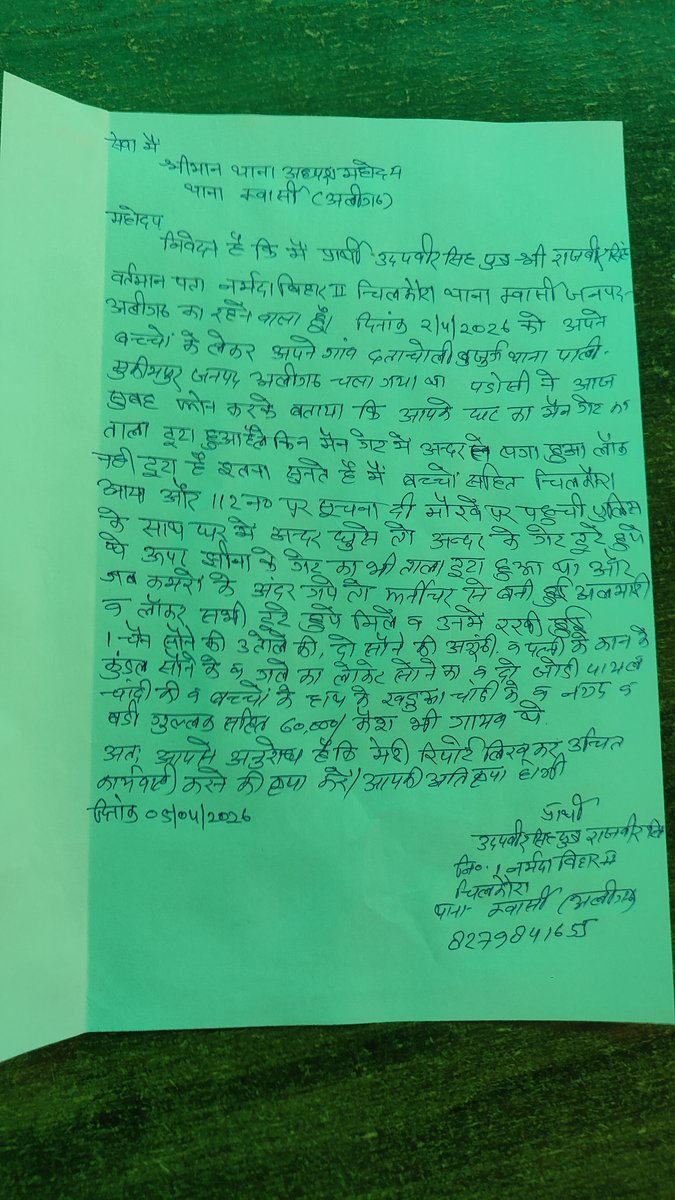 सेवा मैं
श्रीमान थाना अध्यक्ष महोदय
थाना क्वार्सी (अलीगढ)
महोदय
निवेदन है कि मैं प्रार्थी उदयवीर सिंह पुत्र श्री राजवीर सिंह
वर्तमान पता नर्मदा विहार II चिलकौरा थाना क्वार्सी जनपद-
अलीगढ का रहने वाला हूँ। दिनांक 2/4/2026 को अपने
बच्चों के लेकर अपने गांव दताचोली बुजुर्ग थाना पाली-
मुकीमपुर जनपद अलीगढ चला गया था पडोसी ने आज
सुबह फोन करके बताया कि आपके घर का मैन गेट का
ताला टूटा हुआ है लेकिन मैन गेट में अन्दर से लगा हुआ लॉक
नही टूटा है इतना सुनते है मैं बच्चों सहित चिलकौरा
आया और 112 न० पर सूचना दी मौके पर पहुची पुलिस
के साथ घर में अन्दर घुसे तो अन्दर के गेट टूटे हुये
थे ऊपर जीना के गेट का भी ताला टूटा हुआ था और
जब कमरों के अंदर गये तो फर्नीचर से बनी हुई अलमारी
व लॉकर सभी टूटे हुये मिले व उनमें रखी हुई
1-चैन सोने की 3 तोले की, दो सोने की अगूठी, व पत्नी के कान के
कुंडल सोने के व गले का लोकेट सोने का व दो जोडी पायल
चांदी की व बच्चों के हाथ के खडुआ चांदी के व नगद व
बडी गुल्लक सहित 60,000/ कैश भी गायब थे.
अतः आपसे अनुरोध है कि मेरी रिपोर्ट लिखकर उचित
कार्यवाही करने की कृपा करें। आपकी अति कृपा होगी
दिनांक 05/04/2026
प्रार्थी
उदयवीर सिंह पुत्र राजवीर सिंह
नि०- नर्मदा विहार-II
चिलकौरा
थाना- क्वार्सी (अलीगढ)
8279841655